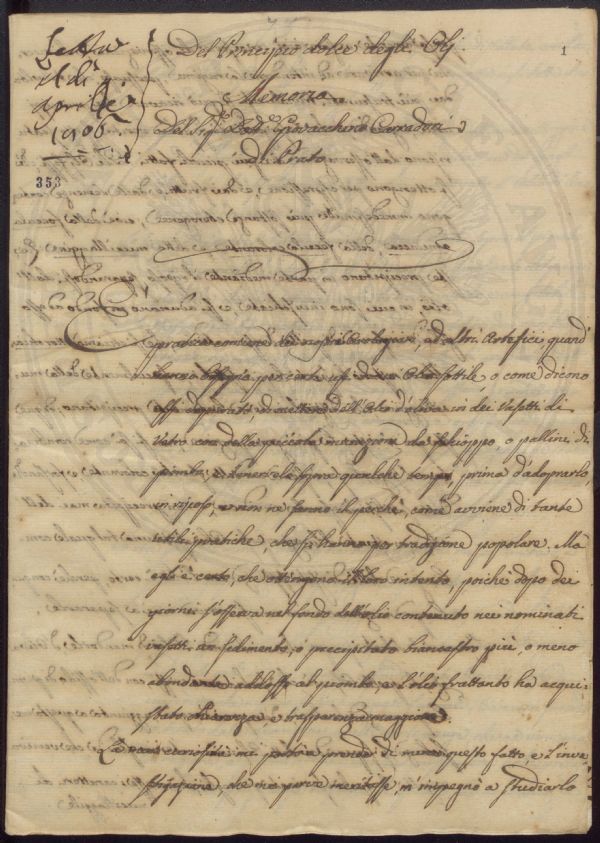 Letta
il dì
Aprile
1806
353
1
Del Principio dolce degli Olj
Memoria
Del Sig.e Dott.e Giovacchino Carradori
di Prato
È pratica comune dei nostri Orologiari, ad altri Artefici quand'
hanno bisogno per certi usi d'un Olio sottile, o come dicono
essi depurato, di mettere dell'Olio d'oliva in dei Vasetti di
Vetro con della piccola munizione da schioppo, o pallini di
piombo, e tenervelo sopra qualche tempo, prima d'adoprarlo
in riposo, e non ne sanno il perchè, come avviene di tante
utili pratiche, che si hanno per tradizione popolare. Ma
egli è certo, che ottengono il loro intento, poichè dopo dei
giorni s'osserva nel fondo dell'olio contenuto nei nominati
vasetti un sedimento, o precipitato biancastro più, o meno
abondante addosso al piombo, e l'olio frattanto ha acqui-
stato chiarezza e trasparenza maggiore.
La mia curiosità mi portò a prender di mira questo fatto, e l'inve
stigazione, che mi parve meritasse, m'impegnò a studiarlo